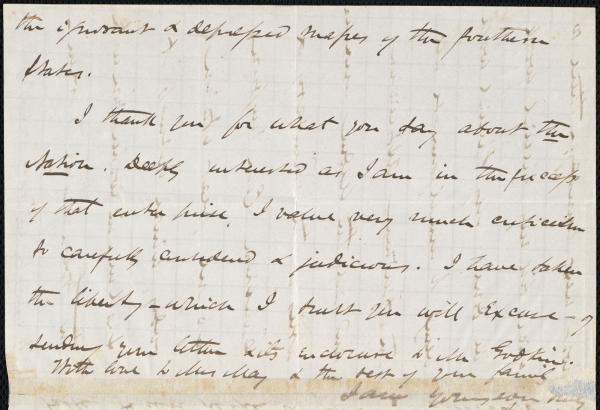 the ignorant & depressed masses of the Southern
States.
I thank you for what you say about the
Nation. Deeply interested as I am in the success
of that enterprise, I value very much criticism
so carefully considered & judicious. I have taken
the liberty - which I trust you will excuse - of
sending your letter & its enclosure to Mr Godkin.
With love to Miss May & the rest of your family
I am yours